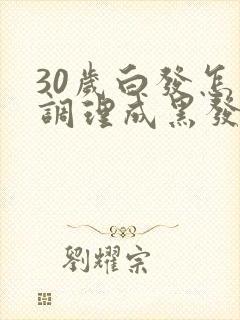 30歲白發怎
調理成黑發
劉耀宗